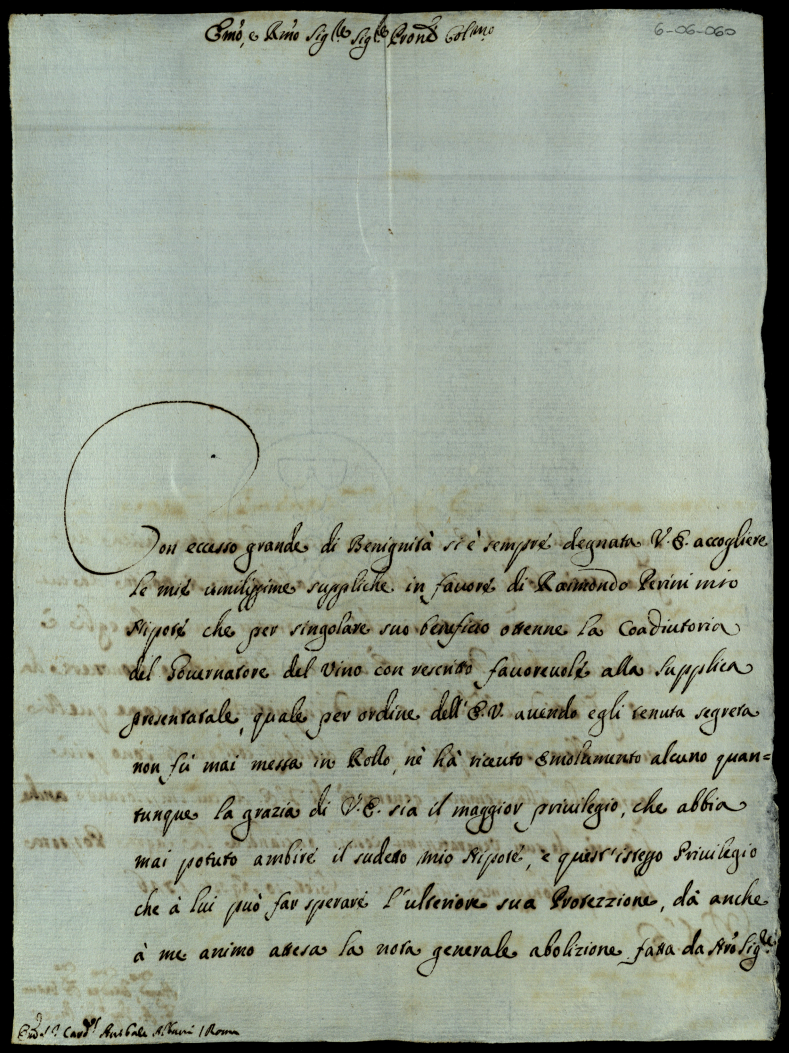 Emo, e Rmo Sigre Sigre Prone Colmo
6-06-060
Con eccesso grande di Benignità si è sempre degnata V. E. accogliere
le mie umilissime suppliche in favore di Raimondo Perini mio
Nipote che per singolare suo beneficio ottenne la Coadiutoria
del Governatore del Vino con rescritto favorevole alla supplica
presentatale, quale per ordine dell' E.V. avendo egli tenuta segreta
non fù mai messa in Rollo, nè hà riceuto Emolumento alcuno quan=
tunque la grazia di V.E. sia il maggior privilegio, che abbia
mai potuto ambire il sudetto mio Nipote, e quest'istesso Privilegio
che à lui può far sperare l'ulteriore sua Protezzione, dà anche
à me animo attesa la nota generale abolizione fatta da Nro Sigre
Card Annibale Albani / Roma